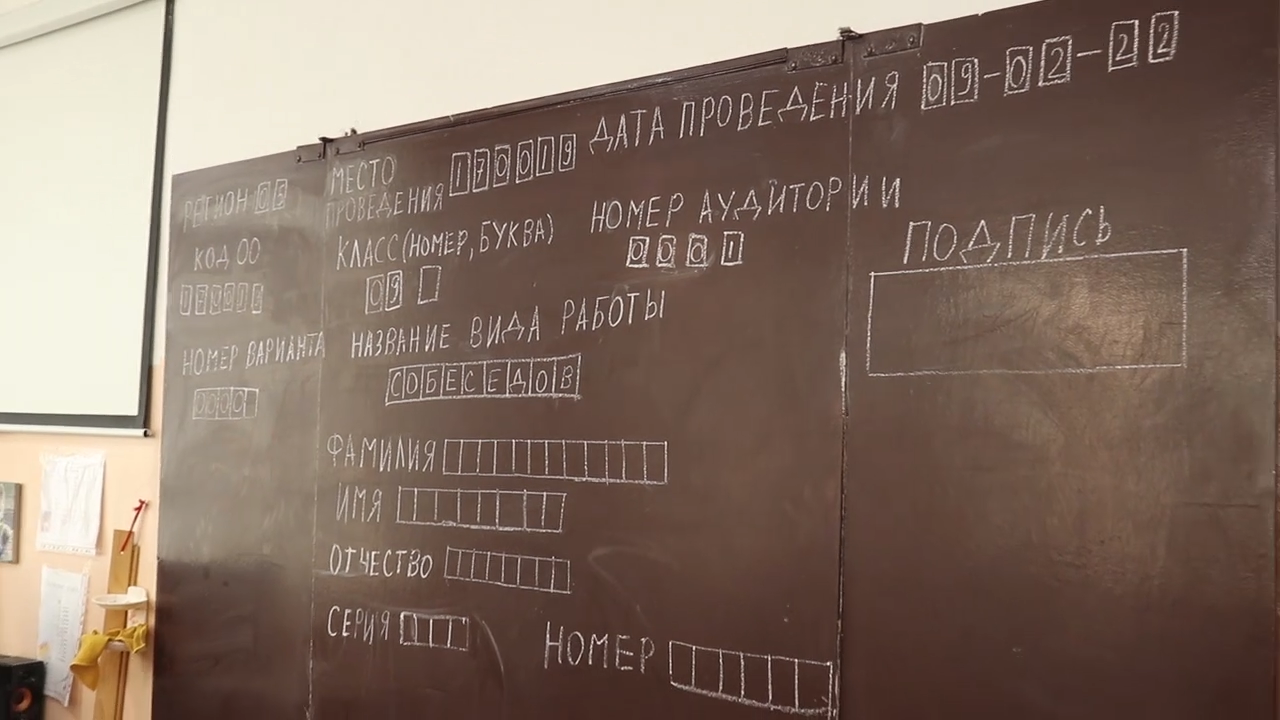 РЕГИОН 03
КОД ОО
НОМЕР ВАРИАНТА
МЕСТО
ПРОВЕДЕНИЯ 170019
ДАТА ПРОВЕДЕНИЯ 09-02-22
КЛАСС (НОМЕР, БУКВА)
09
НОМЕР АУДИТОРИИ
0001
НАЗВАНИЕ ВИДА РАБОТЫ
СОБЕСЕДОВ
ФАМИЛИЯ
ИМЯ
ОТЧЕСТВО
СЕРИЯ
НОМЕР
ПОДПИСЬ